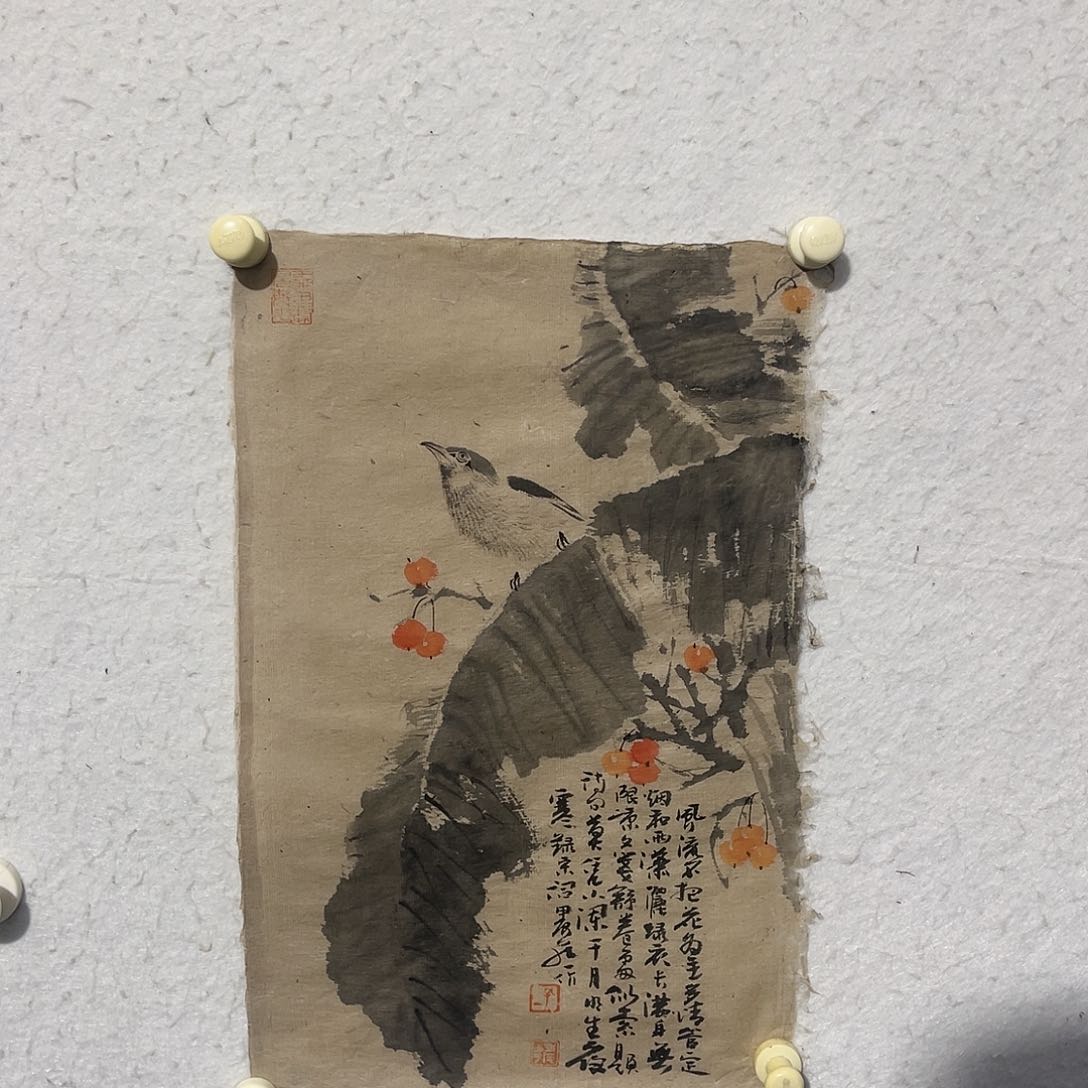 風流不把花為主多情管定
烟和雨瀟灑綠衣長滿身無
限涼文箋舒卷處似索題
詩句莫凭小闌干月明生夜
寒錄宋詞甲辰